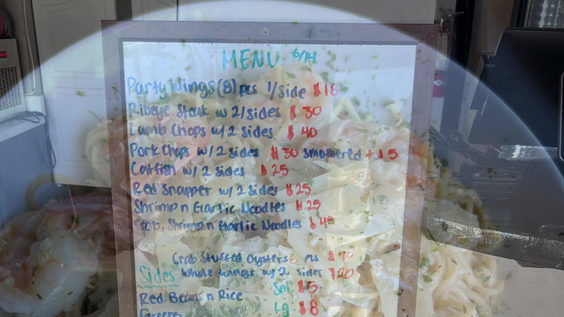 MENU 6/14
Party Wings (8) pcs 1/side $18
Ribeye Steak w 2/sides $30
Lamb Chops w/ 2 sides $40
Pork Chops w/ 2 sides $30 smothered + $5
Catfish w/ 2 sides $25
Red Snapper w/ 2 sides $25
Shrimp n Garlic Noodles $25
Crab, Shrimp n Garlic Noodles $45
Crab Stuffed Oysters
Sides Whole Wings w/ 2 sides $20
Sm. $5
Red Beans n Rice Lg $8